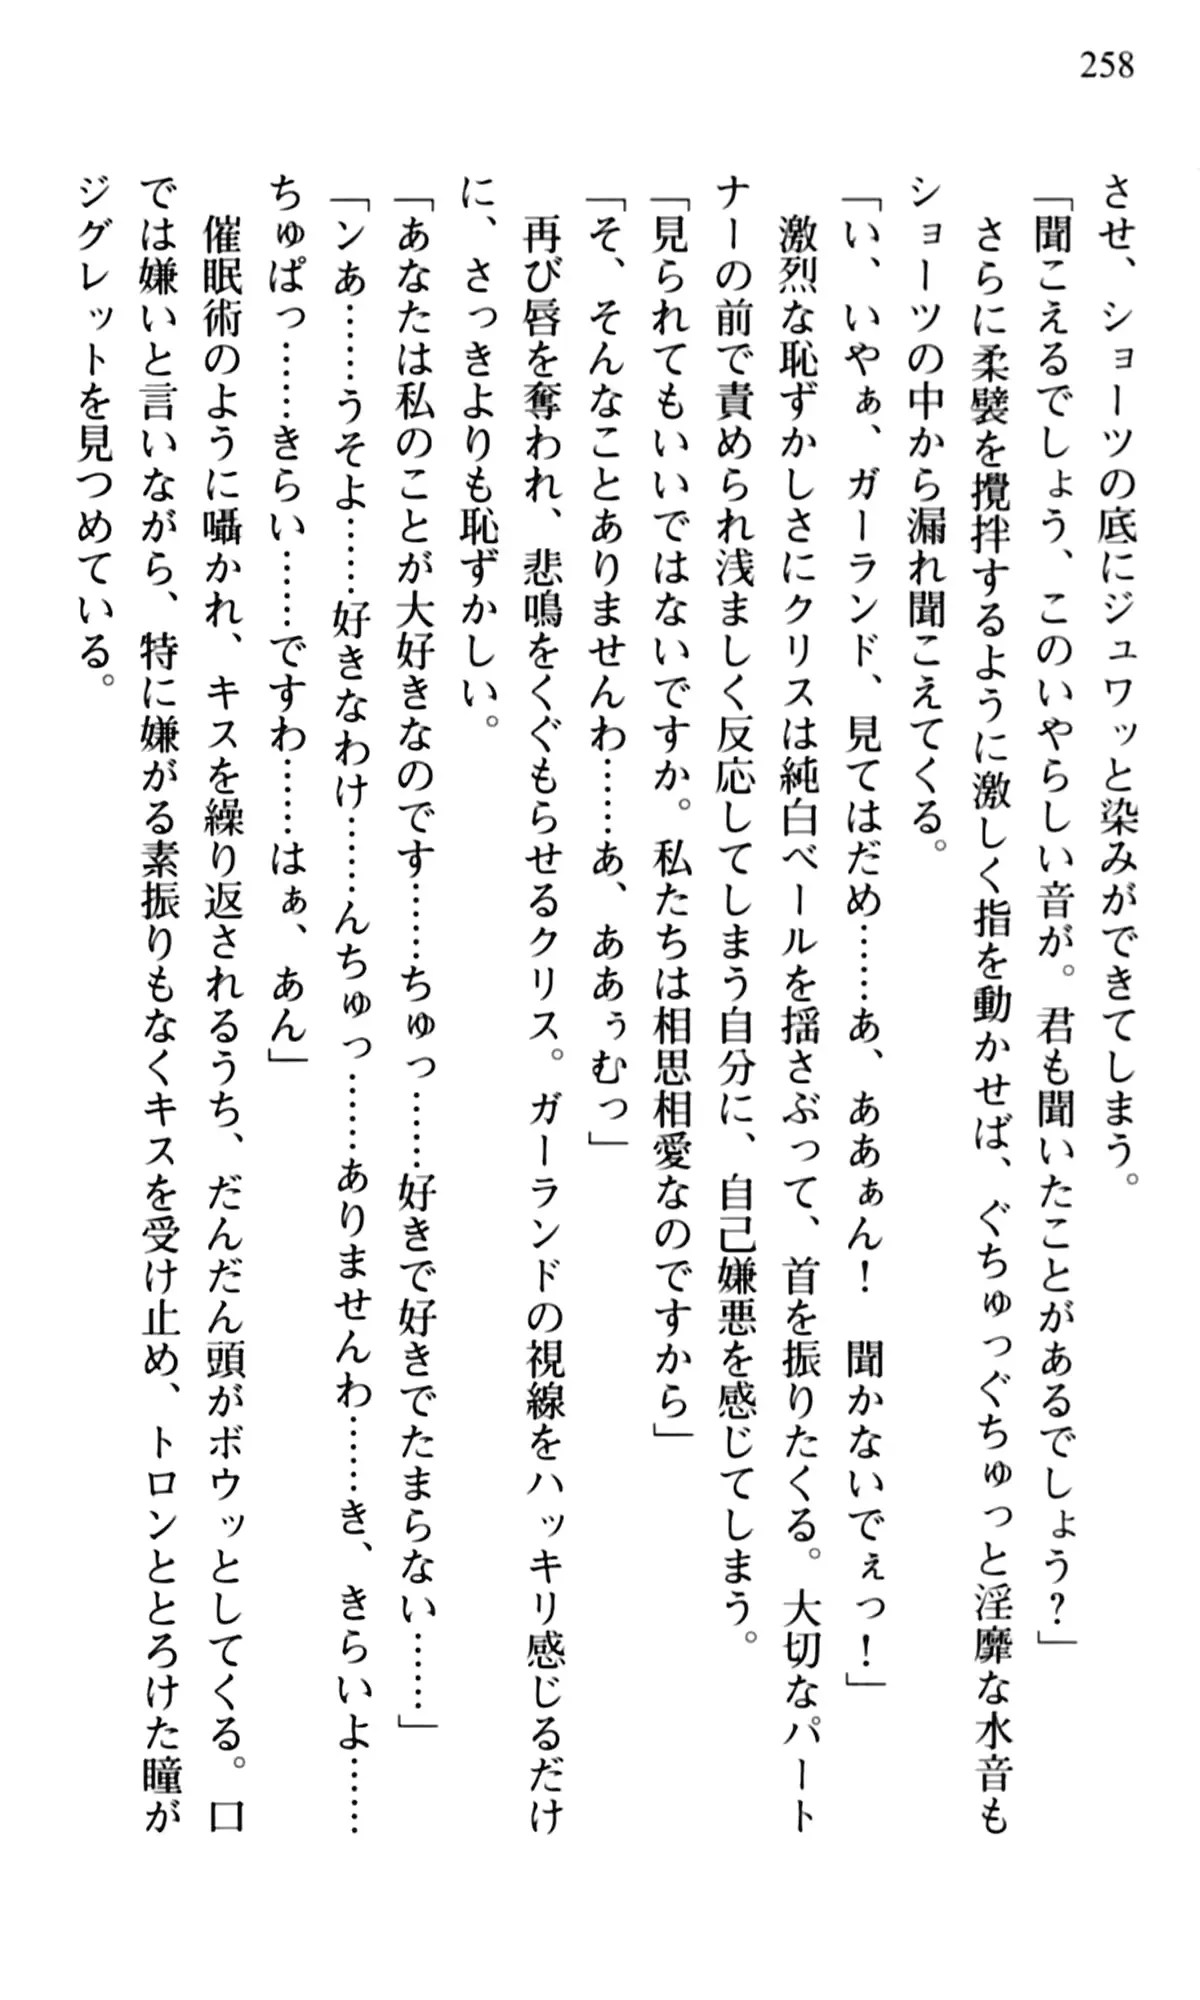 258
させ、ショーツの底にジュワッと染みができてしまう。
「聞こえるでしょう、このいやらしい音が。君も聞いたことがあるでしょう?」
さらに柔襞を攪拌するように激しく指を動かせば、ぐちゅっぐちゅっと淫靡な水音も
ショーツの中から漏れ聞こえてくる。
「い、いやぁ、ガーランド、見てはだめ……あ、ああぁん! 聞かないでぇっ!」
激烈な恥ずかしさにクリスは純白ベールを揺さぶって、首を振りたくる。大切なパート
ナーの前で責められ浅ましく反応してしまう自分に、自己嫌悪を感じてしまう。
「見られてもいいではないですか。私たちは相思相愛なのですから」
「そ、そんなことありませんわ……あ、ああぅむっ」
再び唇を奪われ、悲鳴をくぐもらせるクリス。ガーランドの視線をハッキリ感じるだけ
に、さっきよりも恥ずかしい。
「あなたは私のことが大好きなのです……ちゅっ……好きで好きでたまらない……」
「ンあ……うそよ……好きなわけ……んちゅっ……ありませんわ……き、きらいよ……
ちゅぱっ……きらい……ですわ……はぁ、あん」
催眠術のように囁かれ、キスを繰り返されるうち、だんだん頭がボウッとしてくる。口
では嫌いと言いながら、特に嫌がる素振りもなくキスを受け止め、トロンととろけた瞳が
ジグレットを見つめている。